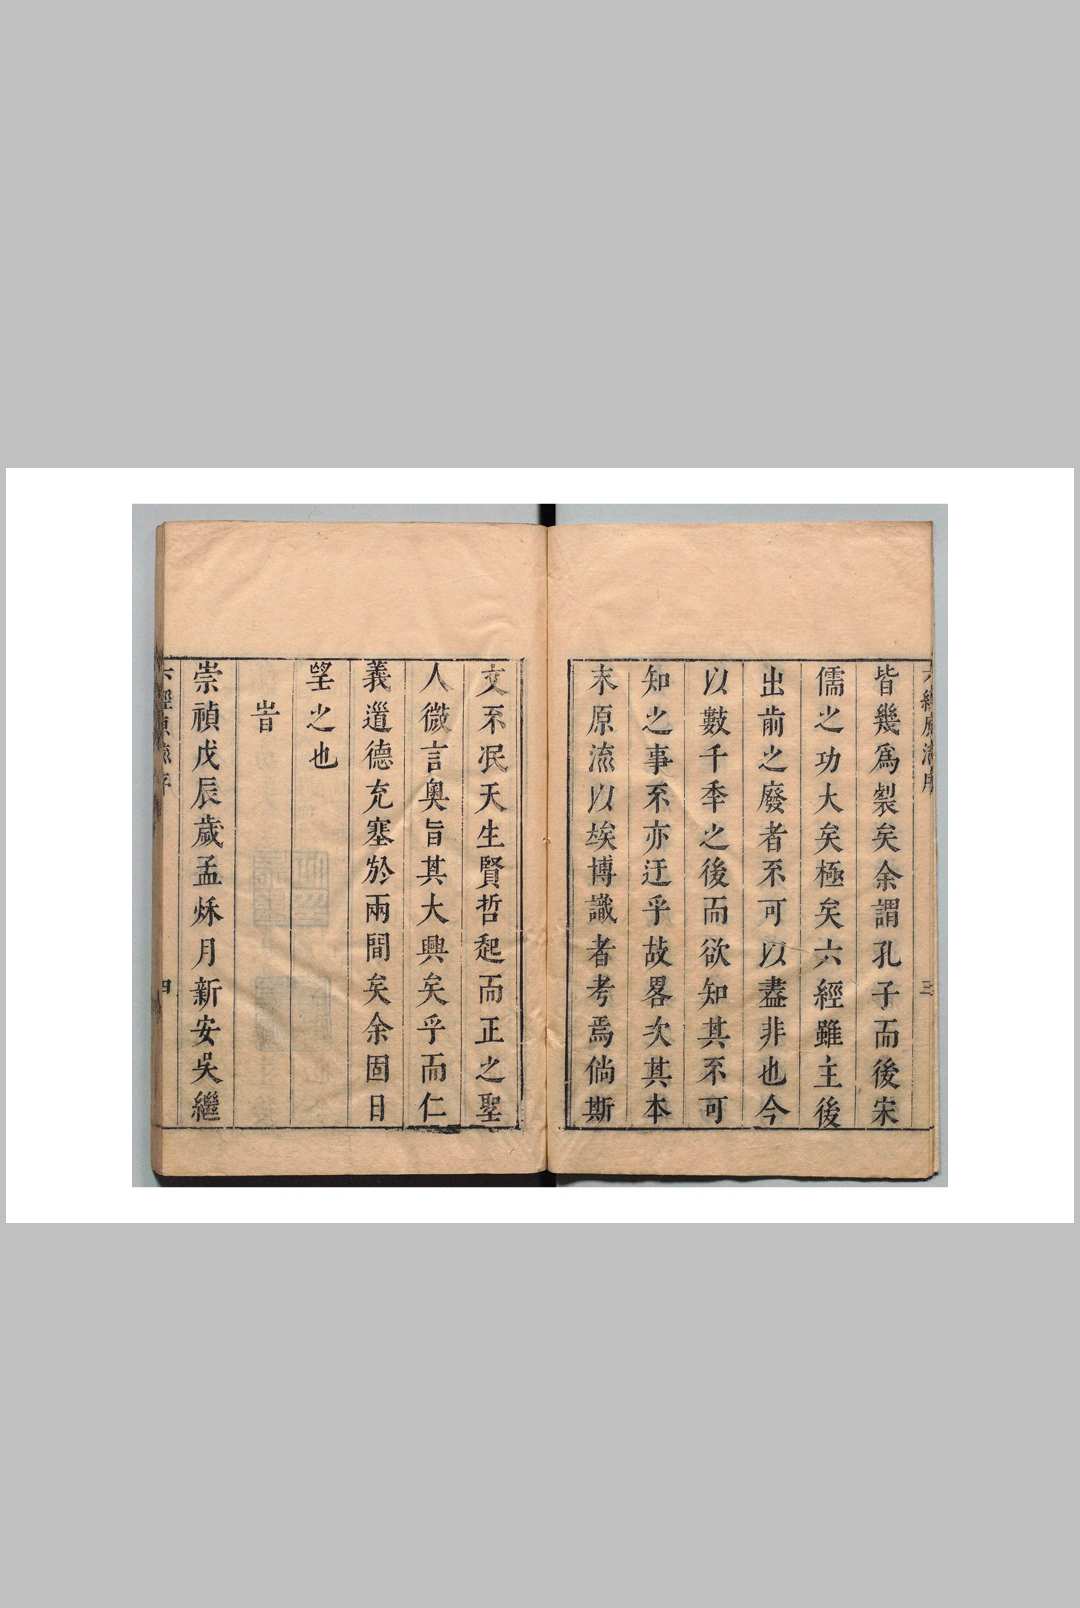 六經原流序
三
皆幾爲裂矣余謂孔子而後宋
儒之功大矣極矣六經雖主後
出前之廢者不可以盡非也今
以數千秊之後而欲知其不可
知之事不亦迂乎故畧次其本
末原流以俟博識者考焉倘斯
文不泯天生賢哲起而正之聖
人微言奧旨其大興矣乎而仁
義道德充塞於兩間矣余固日
望之也
旹
崇禎戊辰歲孟秌月新安吳繼
六經原流序
四